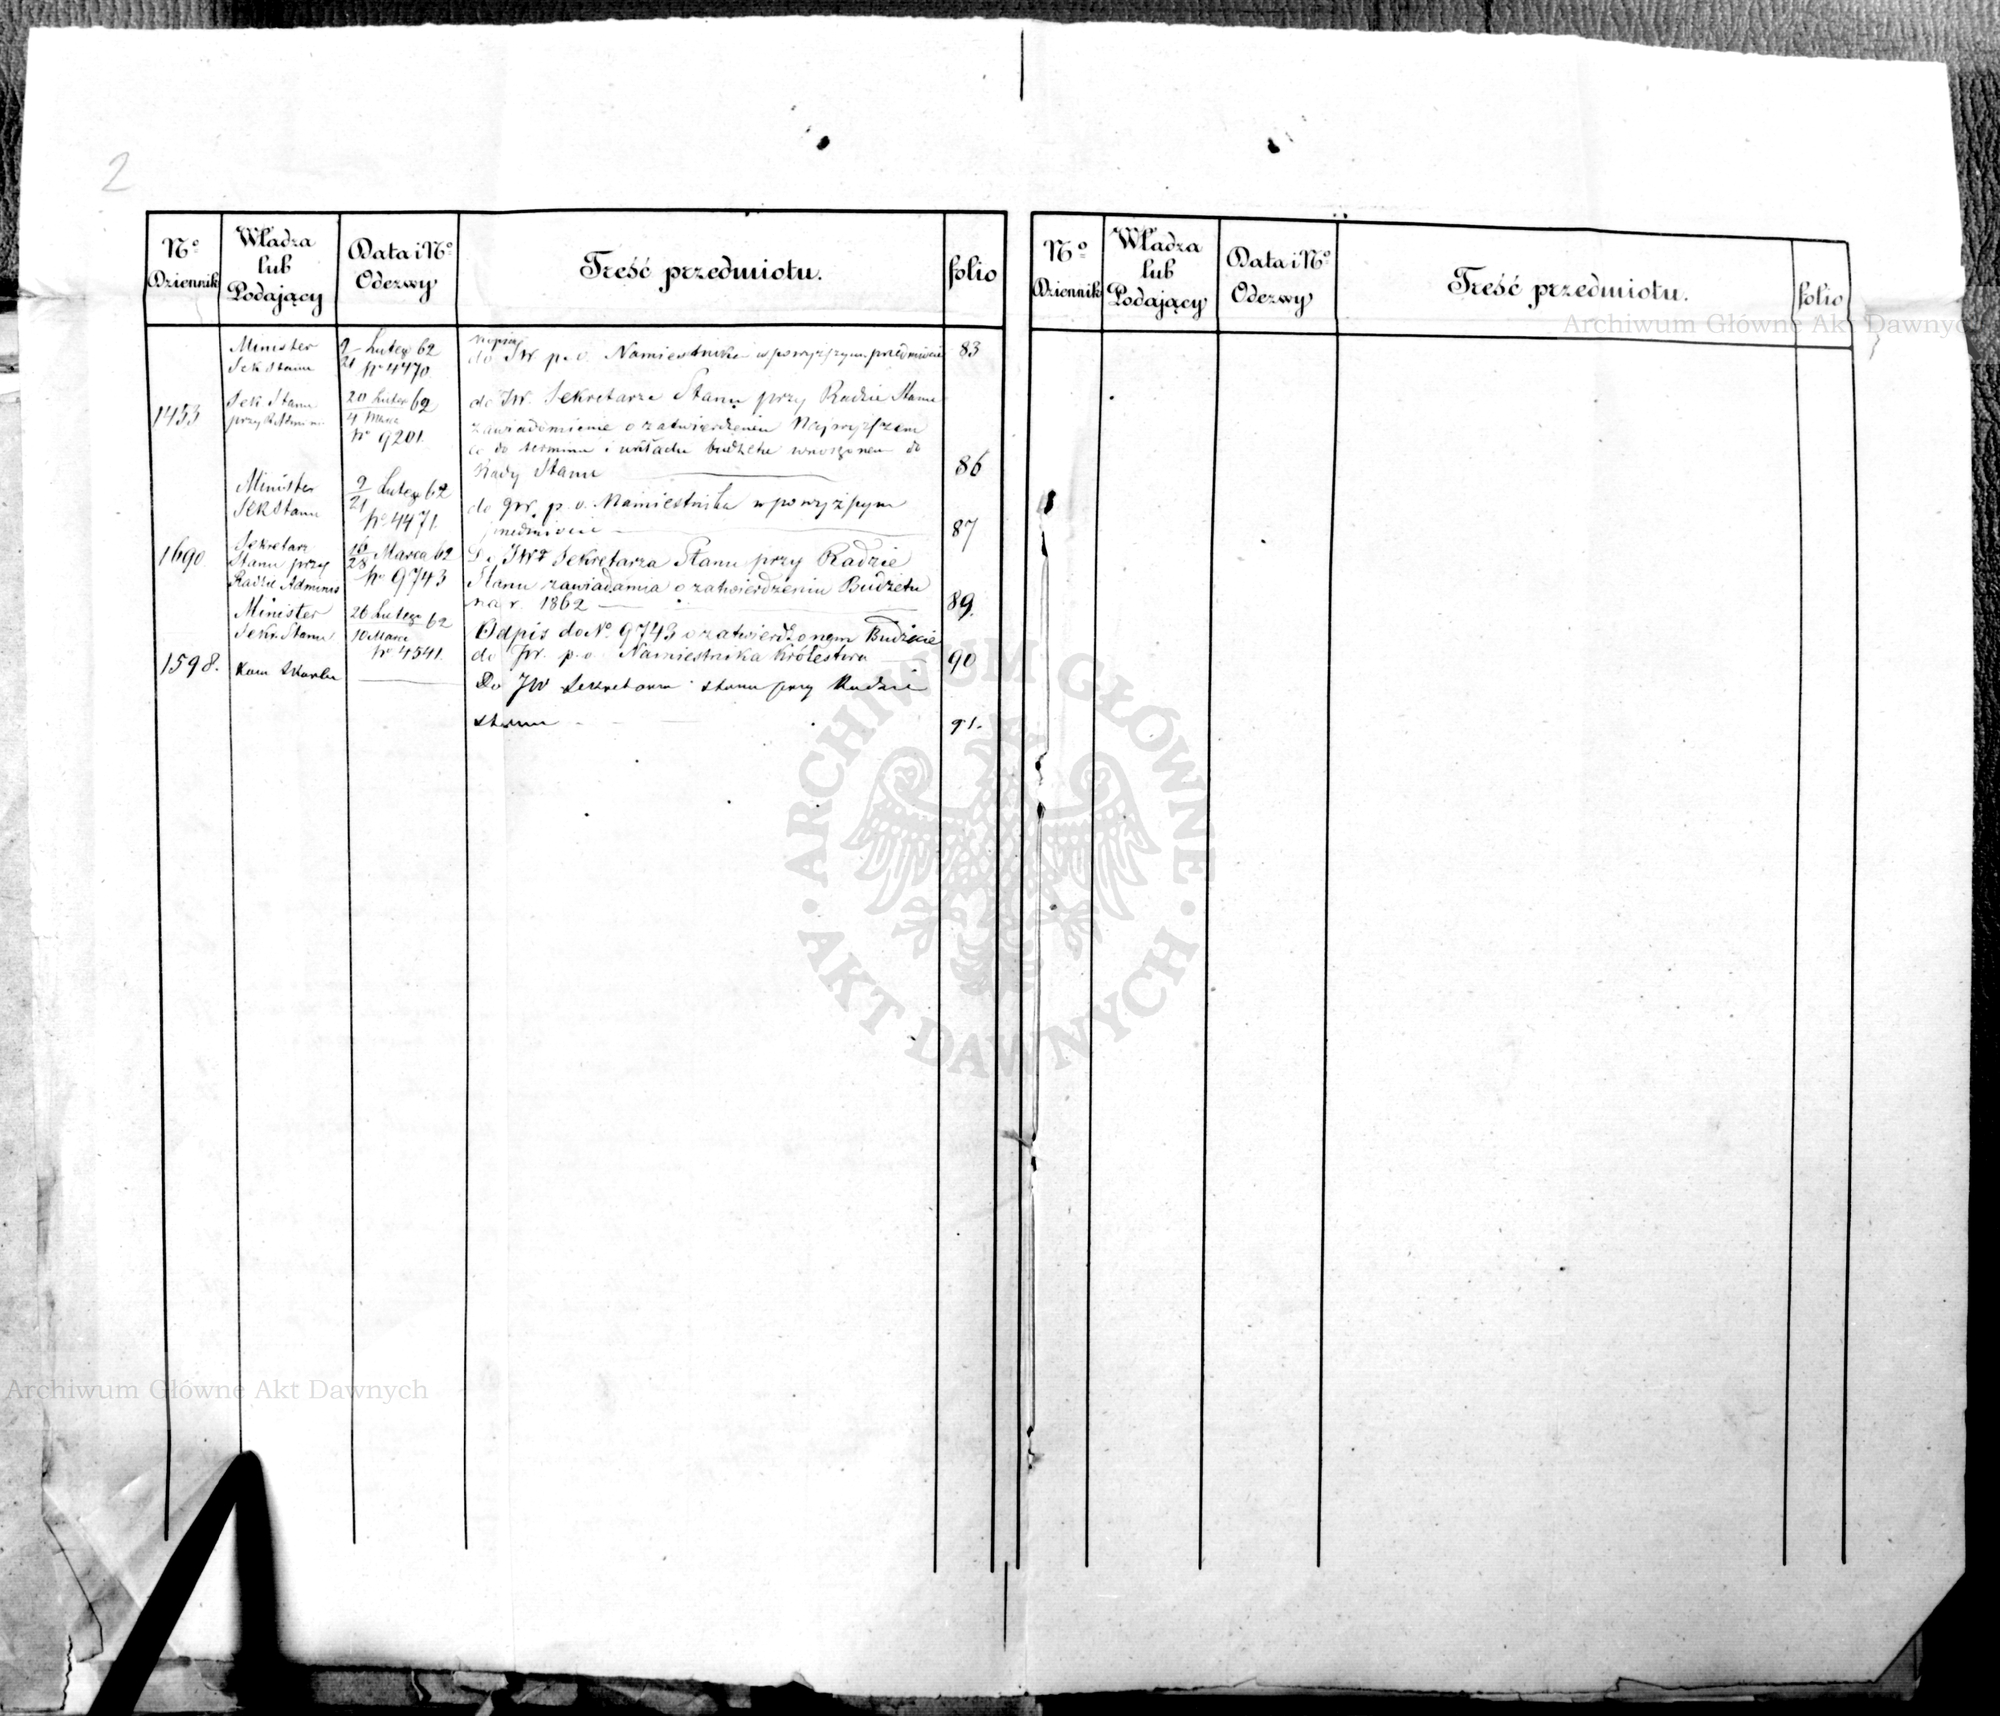 2
Nº Dziennik
Władza lub Podający
Data i Nº Odezwy
Treść przedmiotu.
folio
Minister
Sek Stanu
9/21 Lutego 62
Nº 4470
do JW p. o. Namiestnika w powyższym przedmiocie
83
1453
Sek Stanu
przy R. Admini
20 Lutego 62
4 Marca
Nº 9201.
do JW. Sekretarza Stanu przy Radzie Stanu
zawiadomienie o zatwierdzeniu Najwyższem
co do terminu i układu budżetu wnoszonem do
Rady Stanu
86
Minister
Sek Stanu
9/21 Lutego 62
Nº 4471.
do JW. p. o. Namiestnika w powyższym
przedmiocie
87
1690
Sekretarz
Stanu przy
Radzie Adminis
16/28 Marca 62
Nº 9743
Do JWº Sekretarza Stanu przy Radzie
Stanu zawiadamia o zatwierdzeniu Budżetu
na r. 1862
89.
Minister
Sekr. Stanu
26 Lutego 62
10 Marca
Nº 4541.
Odpis do Nº 9743 o zatwierdzonym Budżecie
do JW. p. o. Namiestnika Królestwa
90
1598.
Kom Skarbu
Do JW Sekretarza Stanu przy Radzie
Stanu
91.
Nº Dziennik
Władza lub Podający
Data i Nº Odezwy
Treść przedmiotu.
folio
Archiwum Główne Akt Dawnych
ARCHIWUM GŁÓWNE AKT DAWNYCH
Archiwum Główne Akt Dawnych